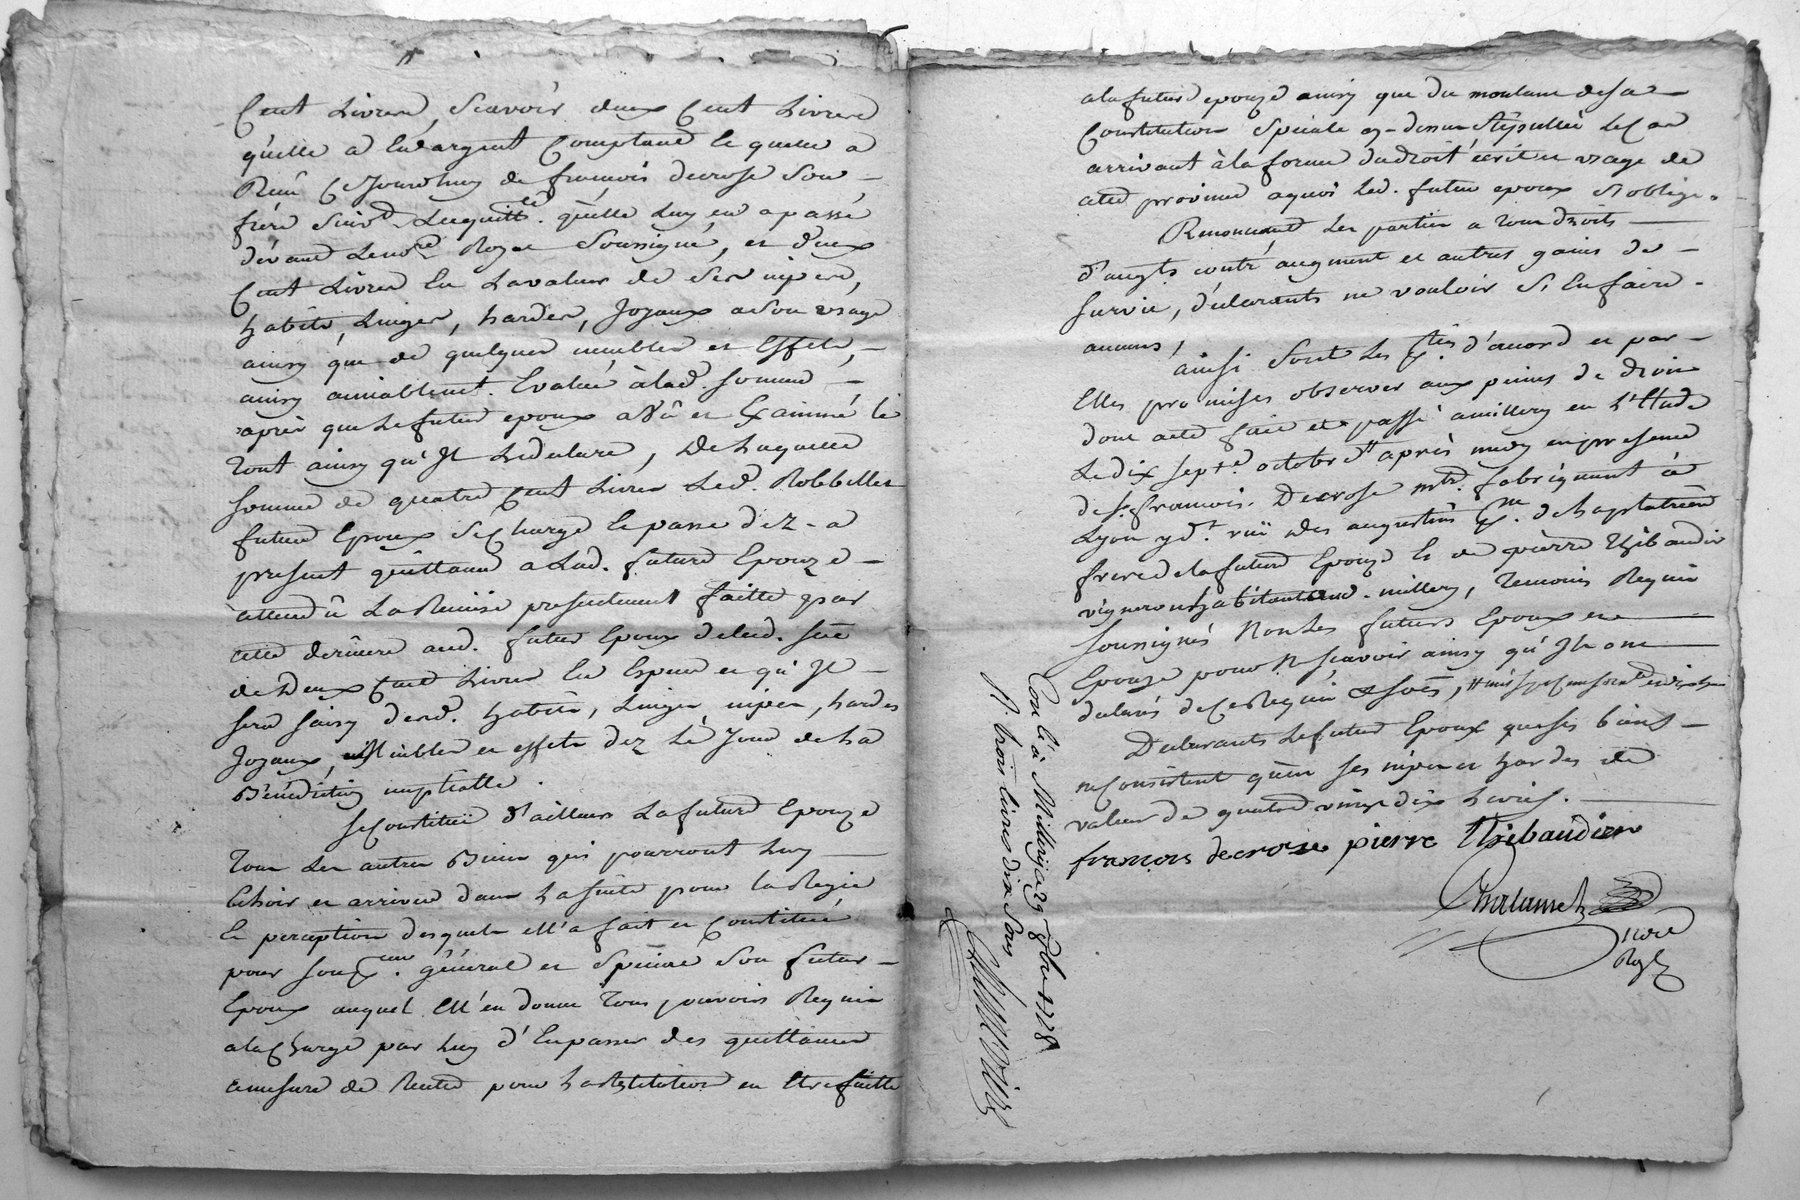 Cent Livres, Scavoir deux Cent Livres
qu'elle a En argent Comptant le quelle a
Reçu Cejourdhuy de francois decrose Son
frère Suivt. La quittce. qu'elle luy en a passé
dévant Le nore Royal Soussigné, et deux
Cent Livres En La valeur de Ses nipes,
habits, Linges, hardes, Joyaux a Son usage
ainsy que de quelques meubles et Effets,
ainsy amiablement. Evalué à lad. Somme
après que Le futur epoux a Vû et Examiné le
Tout ainsy qu'Il L'a declaré, De Laquelle
Somme de quatre Cent Livres Led. Robbellet
futur Epoux Se Charge Et passe dez a
present quittance a Lad. future Epouze
attendû La Remise presentement faitte par
cette derniere aud. futur Epoux de lad. Sme
de Deux Cent Livres En Espece et qu'Il
Sera Saisy desd. habits, Linges nipes, hardes
Joyaux, Meubles et effets dez Lè Jour de La
Bénédiction nuptialle.
Se Constitue d'ailleurs La future Epouze
Tous Les autres Biens qui pourront Luy
Echoir et arriver dans La Suite pour la Regie
Et perception desquels ell'a fait et Constitué
pour Son général et Spécial Son futur
Epoux auquel Ell'en donne Tous pouvoirs Requis
a la Charge par Luy d'En passer des quittances
a mesure de pour La Restitution en Etre faitte
a la future epouze ainsy que du montant de sa
Constitution Speciale cy-dessus Stipullée Le Cas
arrivant à la forme du droit écrit et usage de
cette province a quoi Led. futur epoux S'oblige.
Renonceant Les parties a Tous droits
d'augts contre augment et autres gains de
Survie, déclarants ne vouloir S'En faire
aucuns,
ainsi Sont Les d'accord et par
Elles promises observer aux peines de droit
dont acte fait et passé a millery en L'Etude
Le dix sept. octobre après midy en presence
de Sr. francois Decrose md. fabriquant à
Lyon yd. ruë des augustins de La platrière
frere de la future Epouze Et de pièrre Thibaudier
vigneron habitant aud. millery, Temoins Requis
Soussignés Non Les futurs Epoux et
Epouze pour Ne Scavoir ainsy qu'Ils ont
declarés de Ce Requis
Declarants Le futur Epoux que Ses biens
ne Consistent qu'en Ses nipes et hardes de
valeur de quatre vingt dix Livres.
francois decrose pierre Thibaudier
Chalamel
nore
Royal
Con lé à Millery a 29 8bre 1778
R. trois livres dix Sous